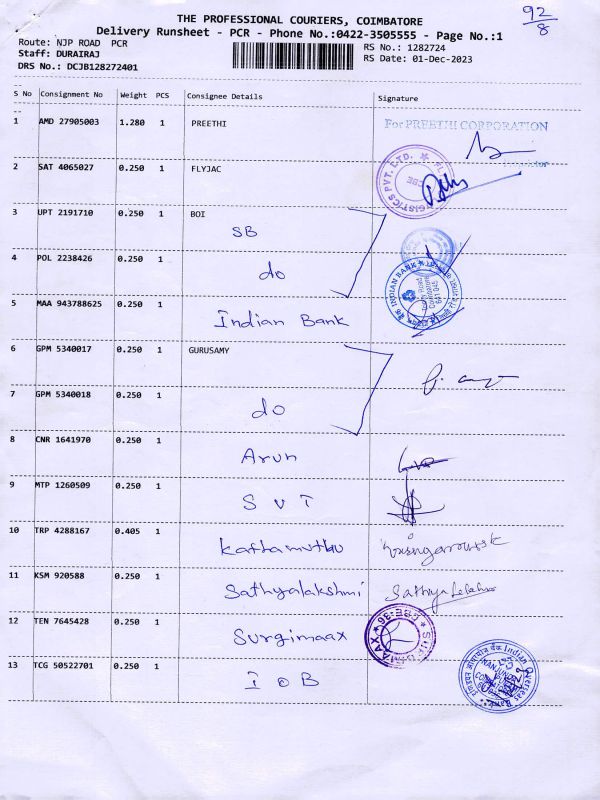 92
8
THE PROFESSIONAL COURIERS, COIMBATORE
Delivery Runsheet - PCR - Phone No.:0422-3505555 - Page No.:1
Route: NJP ROAD PCR
Staff: DURAIRAJ
DRS No.: DCJB128272401
RS No.: 1282724
RS Date: 01-Dec-2023
S No Consignment No Weight PCS Consignee Details Signature
1 AMD 27905003 1.280 1 PREETHI For PREETHI CORPORATION
2 SAT 4065027 0.250 1 FLYJAC
3 UPT 2191710 0.250 1 BOI
SB
4 POL 2238426 0.250 1
do
5 MAA 943788625 0.250 1
Indian Bank
6 GPM 5340017 0.250 1 GURUSAMY
7 GPM 5340018 0.250 1
do
8 CNR 1641970 0.250 1
Arun
9 MTP 1260509 0.250 1
S V T
10 TRP 4288167 0.405 1
Kathamuthu
11 KSM 920588 0.250 1
Sathyalakshmi
12 TEN 7645428 0.250 1
Surgimaax
13 TCG 50522701 0.250 1
I O B